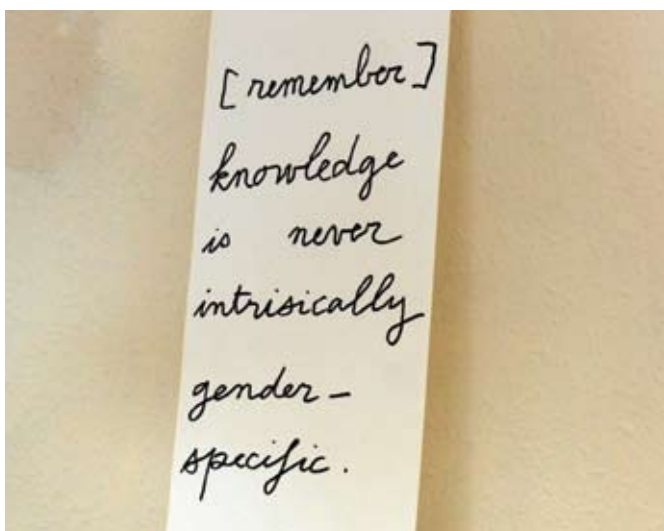 [remember]
knowledge
is never
intrisically
gender-
specific.